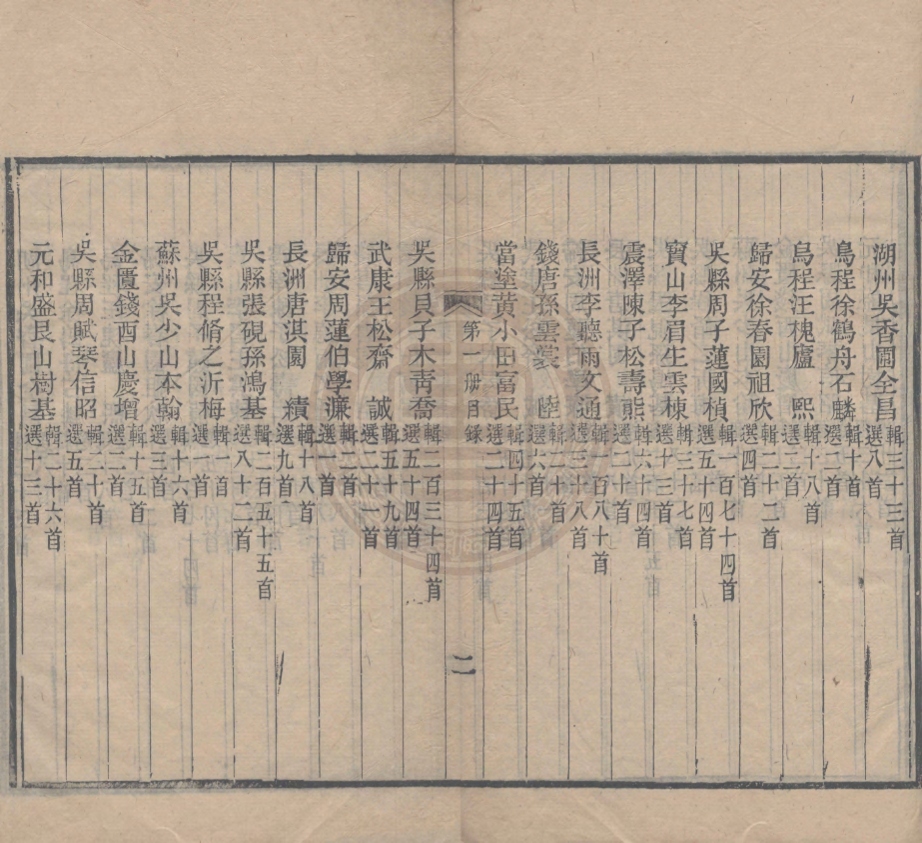 湖州吳香圃全昌輯三十三首選八首
烏程徐鶴舟石麟輯十首選二首
烏程汪槐廬　熙輯十八首選三首
歸安徐春園祖欣輯二十二首選四首
吳縣周子蓮國楨輯一百七十四首選五十四首
寶山李眉生雲棟輯三十七首選十三首
震澤陳子松壽熊輯六十四首選二十首
長洲李聽雨文通輯一百八十首選三十八首
錢唐孫雲裳　陸輯二十首選六首
當塗黃小田富民輯四十五首選二十四首
第一册目錄
二
吳縣貝子木青喬輯二百三十四首選五十四首
武康王松齋　誠輯五十九首選二十一首
歸安周蓮伯學濂輯二首選一首
長洲唐淇園　績輯十八首選九首
吳縣張硯孫鴻基輯二百五十五首選八十二首
吳縣程脩之沂梅輯一首選一首
蘇州吳少山本翰輯十六首選三首
金匱錢酉山慶增輯十五首選二首
吳縣周賦琴信昭輯二十首選五首
元和盛艮山樹基輯二十六首選十三首